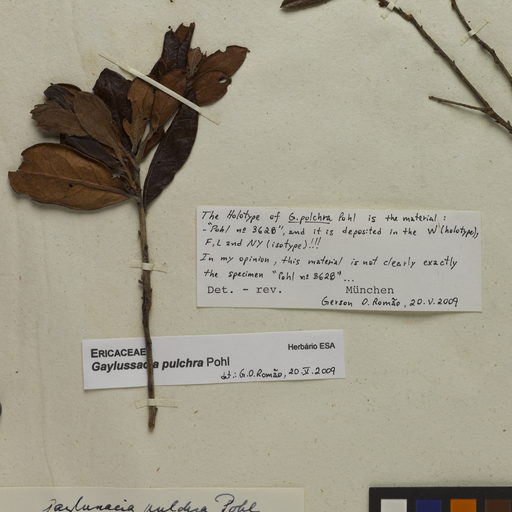 The Holotype of G. pulchra Pohl is the material:
-"Pohl nº 3628", and it is deposited in the W (holotype),
F, L and NY (isotype)!!!
In my opinion, this material is not clearly exactly
the specimen "Pohl nº 3628"...
Det. - rev. München
Gerson O. Romão, 20.V.2009
ERICACEAE Herbário ESA
Gaylussacia pulchra Pohl
det.: G.O. Romão, 20 V.2009
Gaylussacia pulchra Pohl